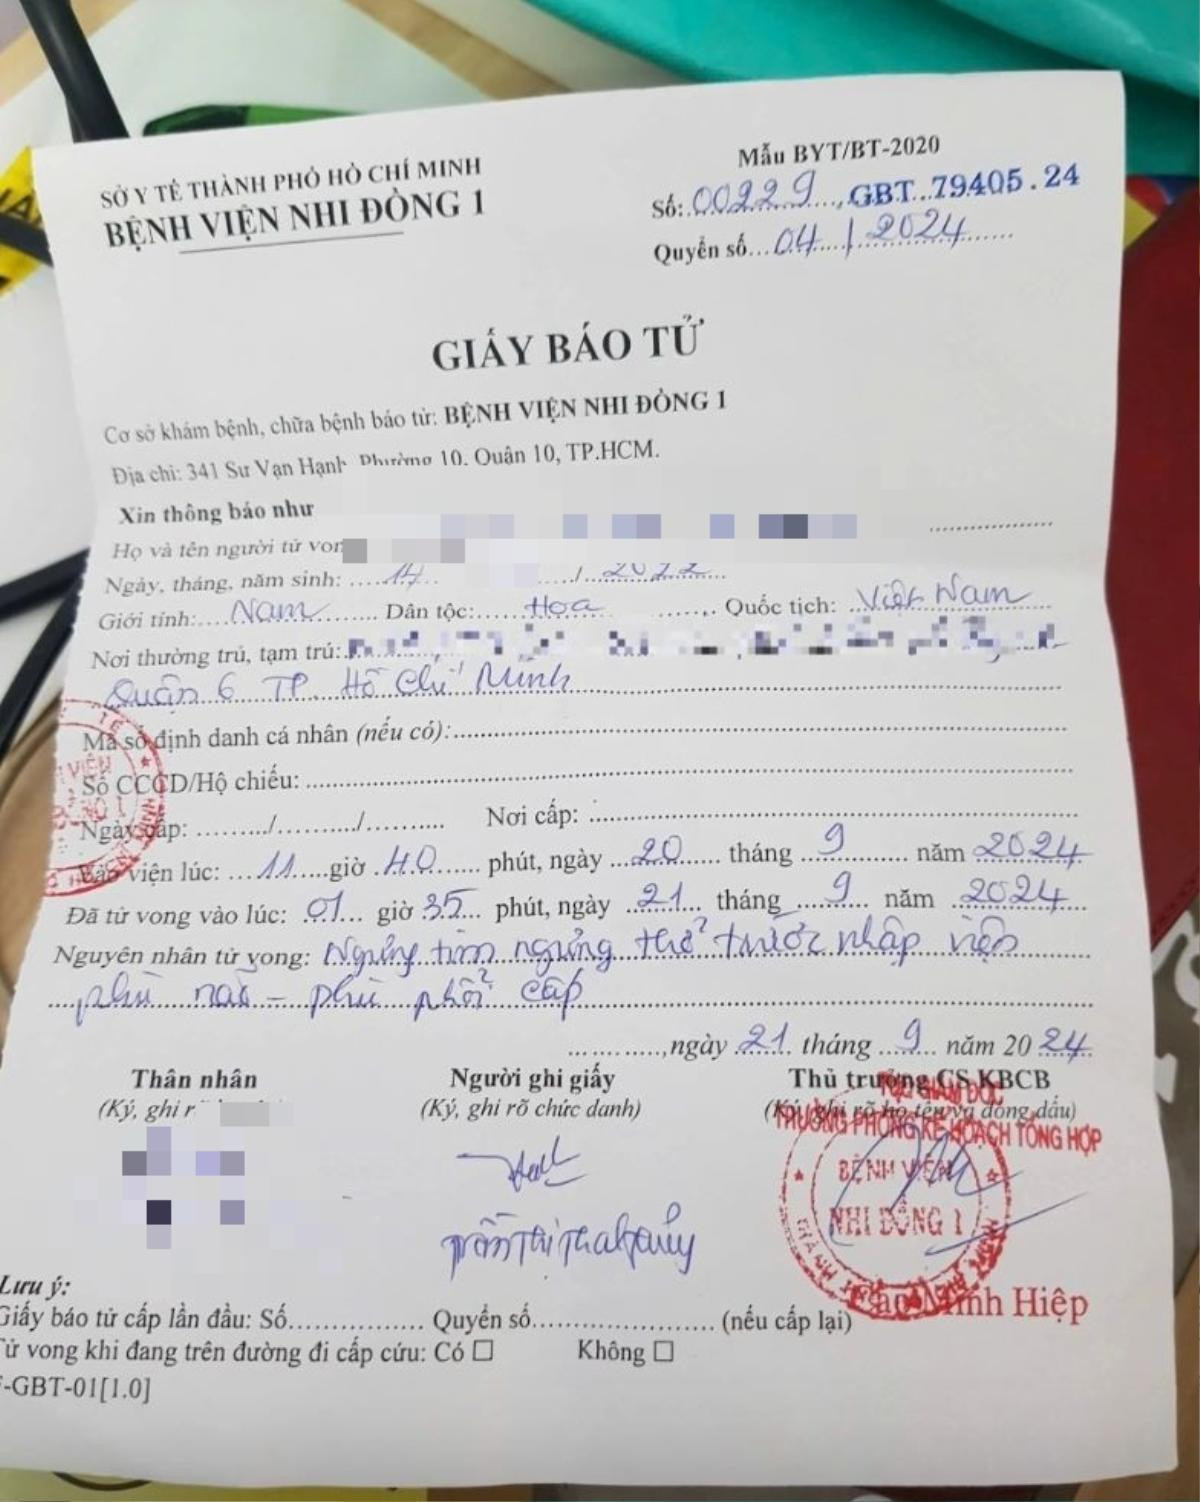 SỞ Y TẾ THÀNH PHỐ HỒ CHÍ MINH
BỆNH VIỆN NHI ĐỒNG 1
Mẫu BYT/BT-2020
Số: 00229, GBT 79405.24
Quyển số... 04 / 2024
GIẤY BÁO TỬ
Cơ sở khám bệnh, chữa bệnh báo tử: BỆNH VIỆN NHI ĐỒNG 1
Địa chỉ: 341 Sư Vạn Hạnh Phường 10. Quận 10, TP.HCM.
Xin thông báo như
Họ và tên người tử von
Ngày, tháng, năm sinh: 14 / 2022
Giới tính: Nam Dân tộc: Hoa Quốc tịch: Việt Nam
Nơi thường trú, tạm trú:
Quận 6 TP. Hồ Chí Minh
Mã số định danh cá nhân (nếu có):
Số CCCD/Hộ chiếu:
Ngày cấp: ......../........./......... Nơi cấp:
Vào viện lúc: 11 giờ 40 phút, ngày 20 tháng 9 năm 2024
Đã tử vong vào lúc: 01 giờ 35 phút, ngày 21 tháng 9 năm 2024
Nguyên nhân tử vong: Ngưng tim ngưng thở trước nhập viện
phù não - phù phổi cấp
..........,ngày 21 tháng 9 năm 2024
Thân nhân Người ghi giấy Thủ trưởng CS KBCB
(Ký, ghi r (Ký, ghi rõ chức danh) (Ký, ghi rõ họ tên và đóng dấu)
TRƯỞNG PHÒNG KẾ HOẠCH TỔNG HỢP
BỆNH VIỆN
NHI ĐỒNG 1
Trần Thị Thanh Thủy
Minh Hiệp
Lưu ý:
Giấy báo tử cấp lần đầu: Số............... Quyển số.................... (nếu cấp lại)
Tử vong khi đang trên đường đi cấp cứu: Có ☐ Không ☐
-GBT-01[1.0]